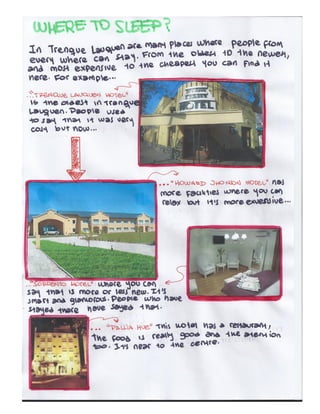 WHERE TO SLEEP?
In Trenque Lauquen are many places where people from
every where can stay. From the oldest to the newen,
and most expensive to the cheapest you can find it
here. For example...
..."TRENQUE LAUQUEN HOTEL"
Is the oldest in Trenque
Lauquen. People used
to say that it was very
cosy but now...
..."HOWARD JHONSON HOTEL" has
more facilities where you can
relax but it's more exvessive...
..."SORRENTO HOTEL" where you can
say that is more or less new. It's
smart and glamorous. People who have
stayed there have sayed that.
... "PALLA HUE" This hotel has a restaurant,
the food is really good and the atention
too. It's near to the centre.